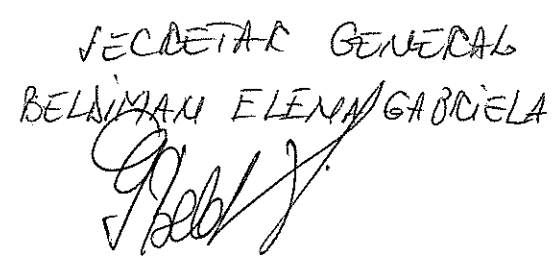 SECRETAR GENERAL
BELDIMAN ELENA GABRIELA